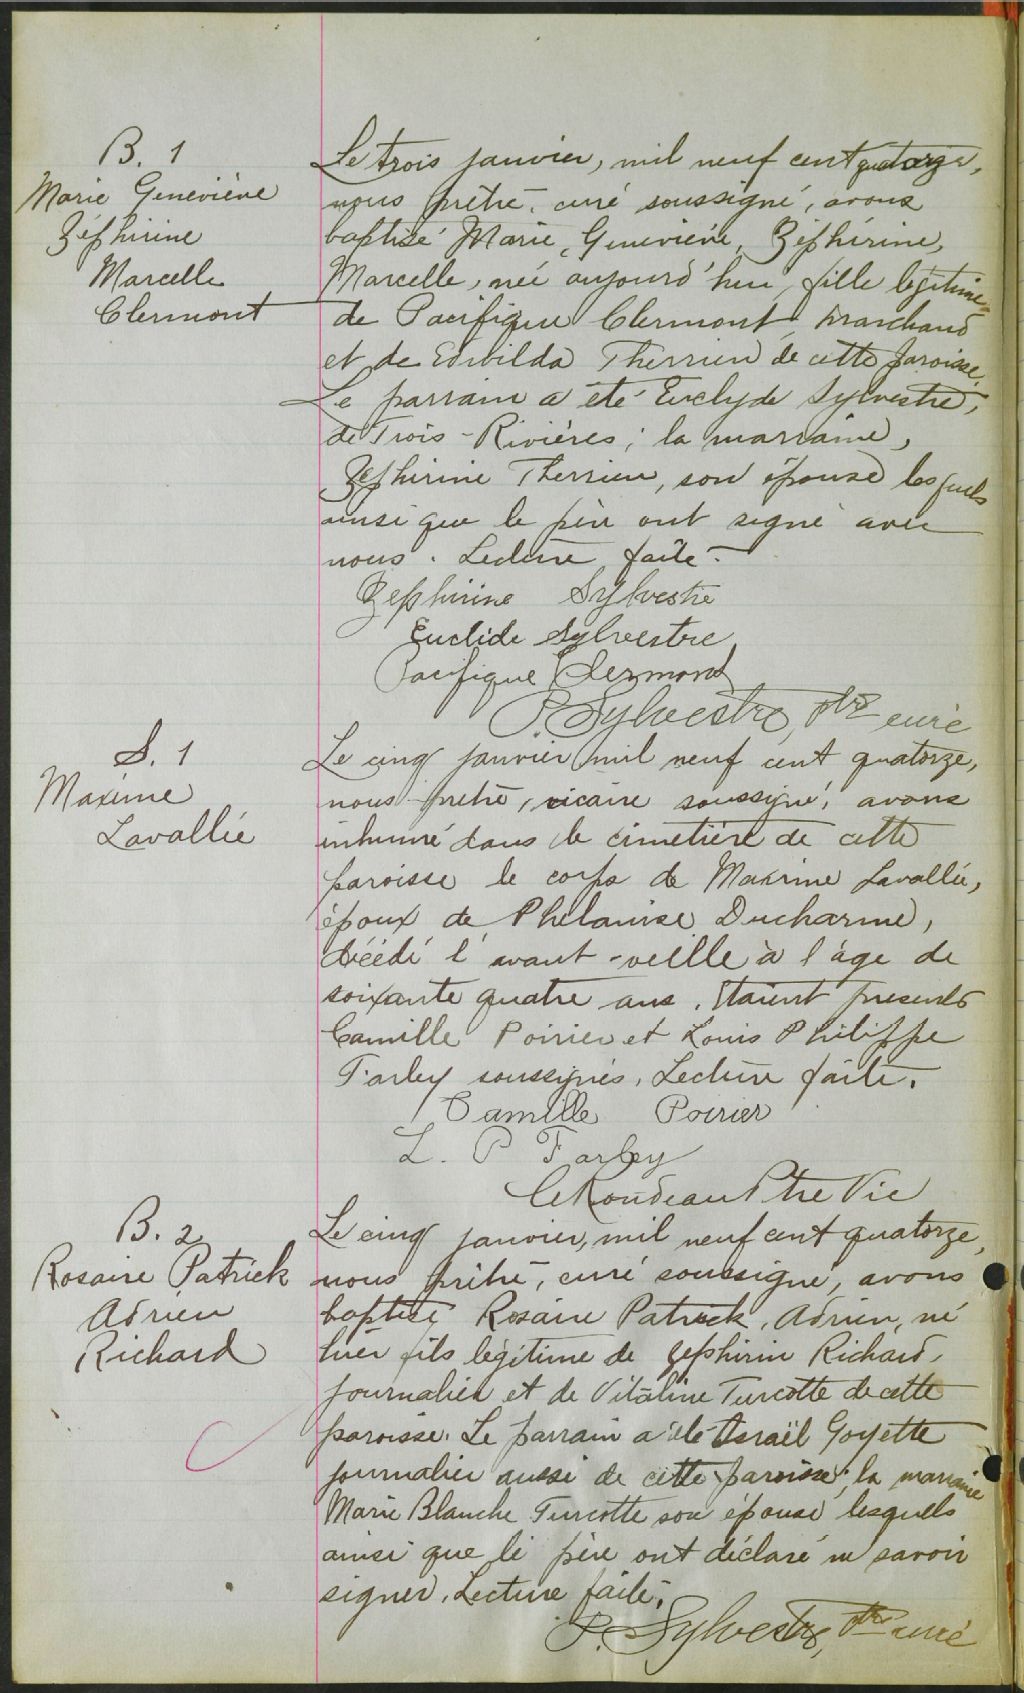 B. 1
Marie Geneviève
Zéphirine
Marcelle
Clermont
Le trois janvier, mil neuf cent quatorze,
nous prêtre, curé soussigné, avons
baptisé Marie, Geneviève, Zéphirine,
Marcelle, née aujourd'hui, fille légitime
de Pacifique Clermont, marchand
et de Edwilda Therrien de cette paroisse.
Le parrain a été Euclyde Sylvestre,
de Trois-Rivières; la marraine,
Zéphirine Therrien, son épouse lesquels
ainsi que le père ont signé avec
nous. Lecture faite.
Zéphirine Sylvestre
Euclide Sylvestre
Pacifique Clermond
P. Sylvestre, Ptre curé
S. 1
Maxime
Lavallée
Le cinq janvier mil neuf cent quatorze,
nous prêtre, vicaire soussigné, avons
inhumé dans le cimetière de cette
paroisse le corps de Maxime Lavallée,
époux de Phelanise Ducharme,
décédé l'avant-veille à l'âge de
soixante quatre ans. Etaient presents
Camille Poirier et Louis Philippe
Farley soussignés. Lecture faite.
Camille Poirier
L. P Farley
Rondeau Ptre Vic
B. 2
Rosaire Patrick
Adrien
Richard
Le cinq janvier, mil neuf cent quatorze,
nous prêtre, curé soussigné, avons
baptisé Rosaire Patrick, Adrien, né
hier fils légitime de Zephirin Richard,
journalier et de Vitaline Turcotte de cette
paroisse. Le parrain a été Israël Goyette
journalier aussi de cette paroisse; la marraine
Marie Blanche Turcotte son épouse lesquels
ainsi que le père ont déclaré ne savoir
signer. Lecture faite.
P. Sylvestre, Ptre curé